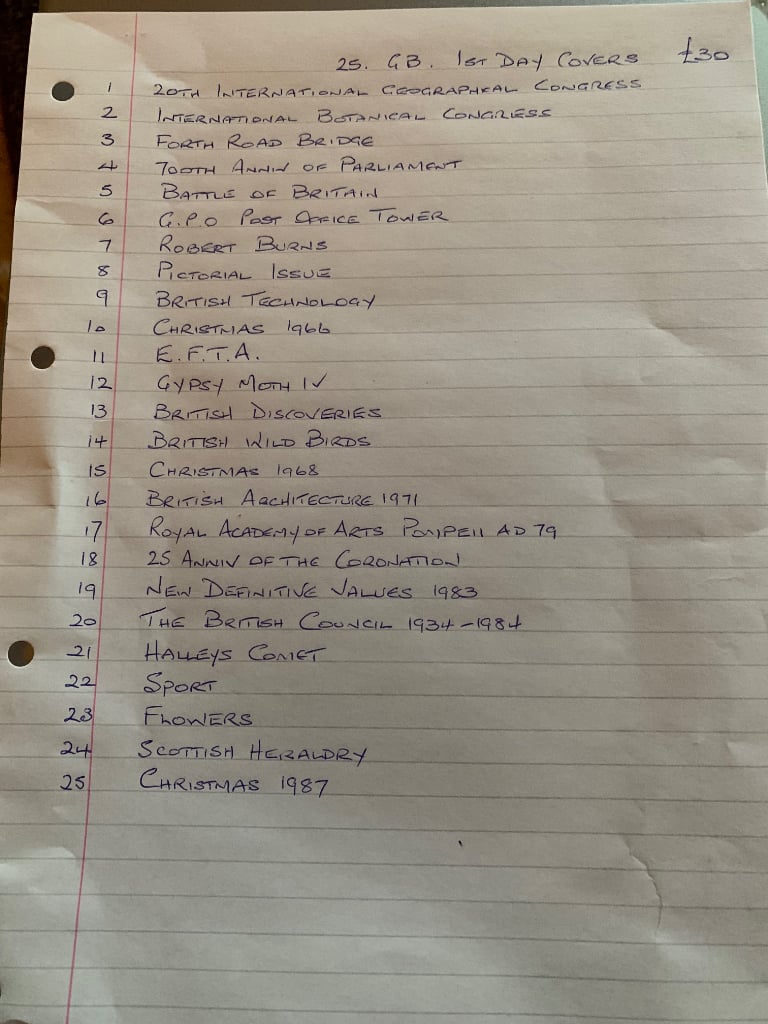 25. GB. 1ST DAY COVERS £30
1 20TH INTERNATIONAL GEOGRAPHICAL CONGRESS
2 INTERNATIONAL BOTANICAL CONGRESS
3 FORTH ROAD BRIDGE
4 700TH ANNIV OF PARLIAMENT
5 BATTLE OF BRITAIN
6 G.P.O POST OFFICE TOWER
7 ROBERT BURNS
8 PICTORIAL ISSUE
9 BRITISH TECHNOLOGY
10 CHRISTMAS 1966
11 E.F.T.A.
12 GYPSY MOTH IV
13 BRITISH DISCOVERIES
14 BRITISH WILD BIRDS
15 CHRISTMAS 1968
16 BRITISH ARCHITECTURE 1971
17 ROYAL ACADEMY OF ARTS POMPEII AD 79
18 25 ANNIV OF THE CORONATION
19 NEW DEFINITIVE VALUES 1983
20 THE BRITISH COUNCIL 1934-1984
21 HALLEYS COMET
22 SPORT
23 FLOWERS
24 SCOTTISH HERALDRY
25 CHRISTMAS 1987